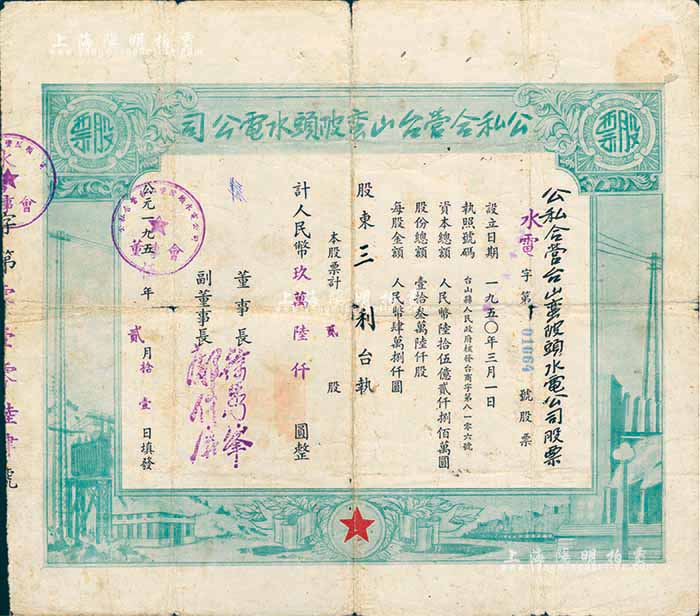 公私合營台山蛮陂頭水電公司
股票
股票
公私合營台山蛮陂頭水電公司股票
水電字第01064號股票
設立日期 一九五〇年三月一日
執照號碼 台山縣人民政府核發台商字第八一零六號
資本總額 人民幣陸拾伍億貳仟捌佰萬圓
股份總額 壹拾叁萬陸仟股
每股金額 人民幣肆萬捌仟圓
股東三利台執
本股票計貳股
計人民幣玖萬陸仟圓整
董事長
副董事長
公元一九五 年貳月拾壹日填發
董 會
會
字第零壹零陸肆號
上海陽明拍賣
上海陽明拍賣
上海陽明拍賣